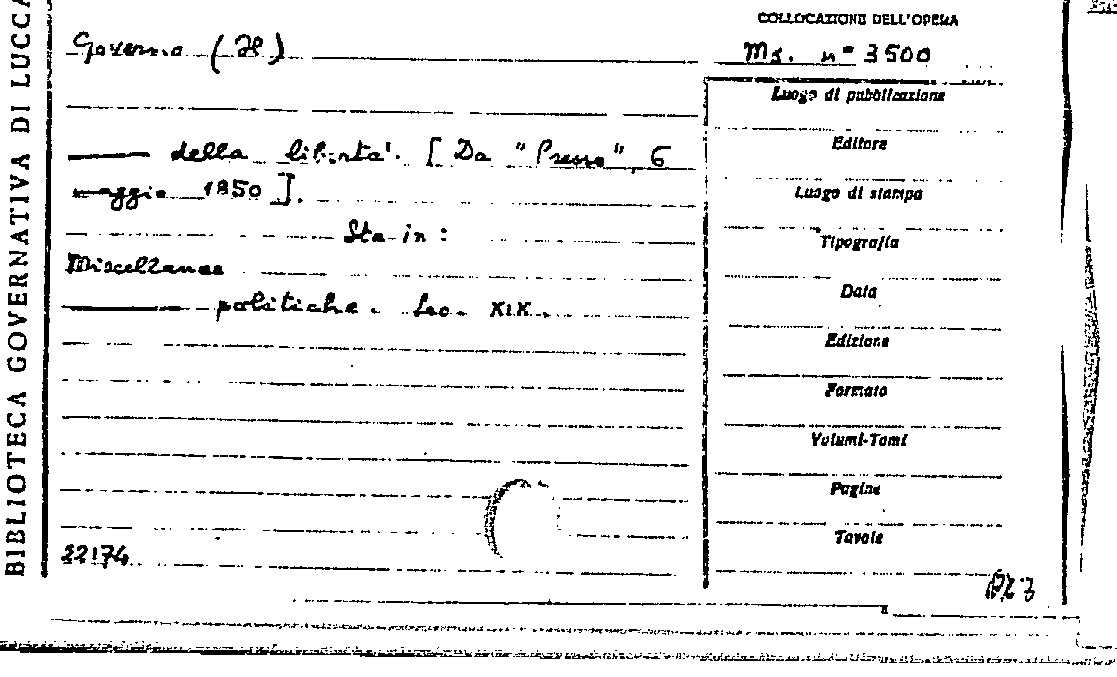 BIBLIOTECA GOVERNATIVA DI LUCCA
COLLOCAZIONE DELL'OPERA
Ms. n° 3500
Governo (Il)
della libertà. [Da "Presse", 6
maggio 1850].
Sta in:
Miscellanee
politiche. Sec. XIX.
22174
Luogo di pubblicazione
Editore
Luogo di stampa
Tipografia
Data
Edizione
Formato
Volumi-Tomi
Pagine
Tavole